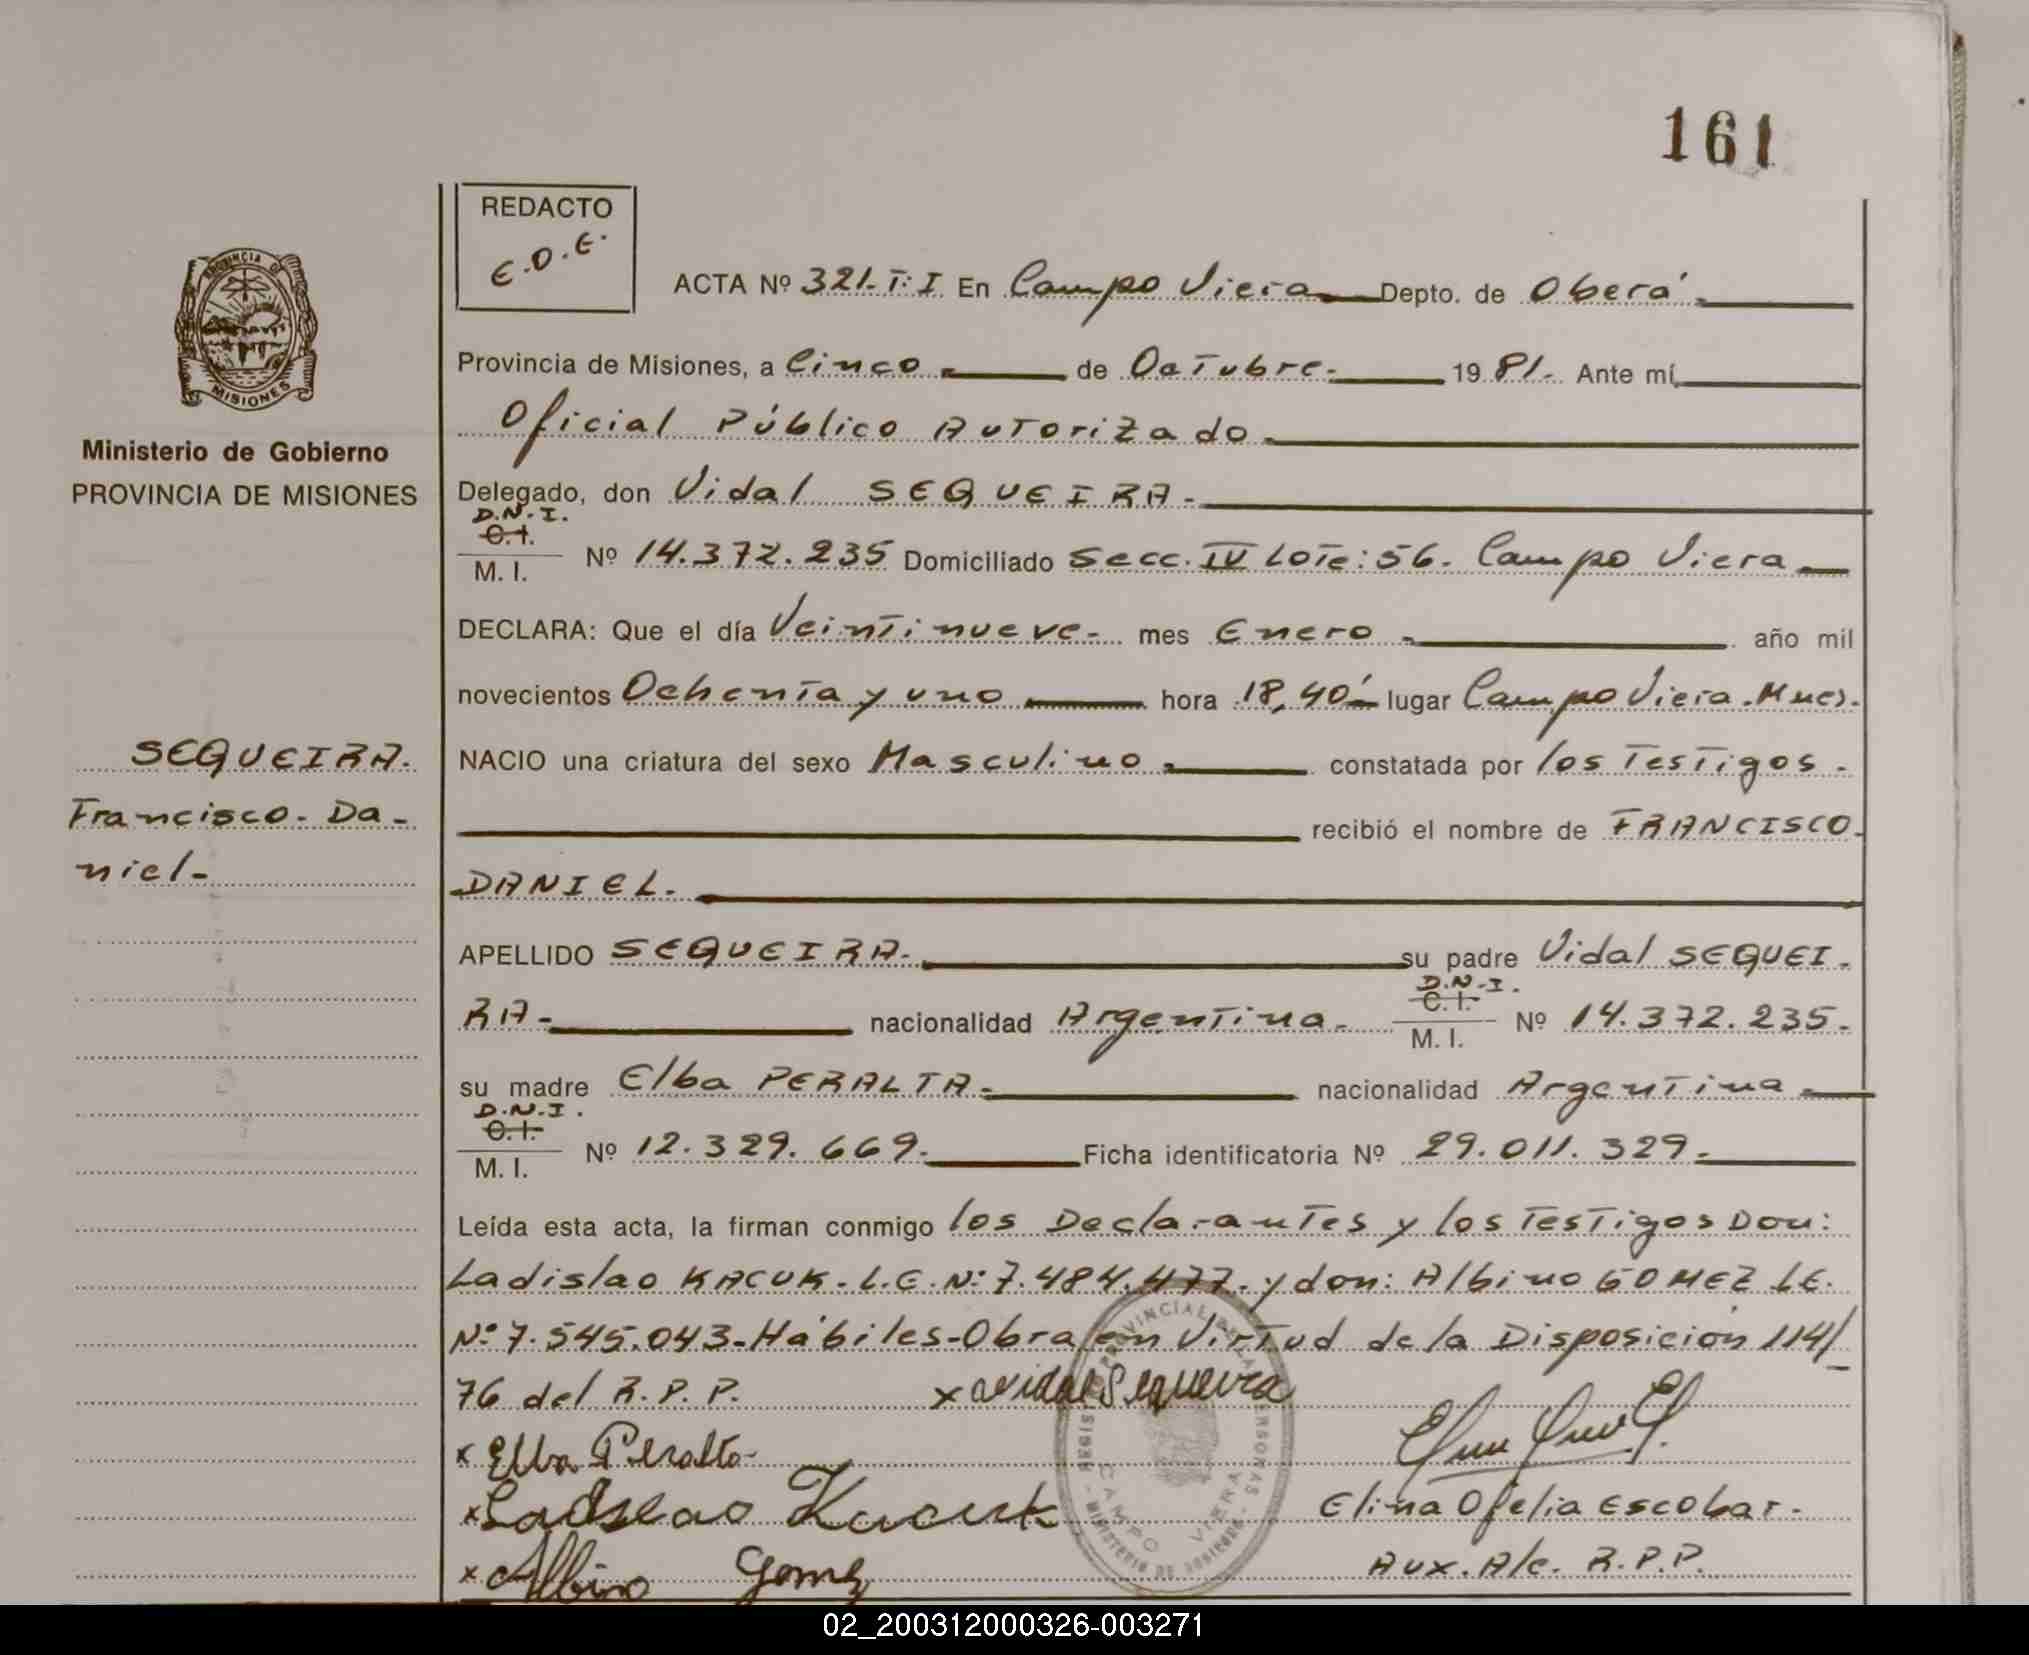 161
REDACTO
E.O.E.
ACTA Nº 321-T: I En Campo Viera Depto. de Oberá.
Provincia de Misiones, a Cinco de Octubre. 1981. Ante mí
Oficial Público Autorizado
PROVINCIA DE
MISIONES
Ministerio de Gobierno
PROVINCIA DE MISIONES
Delegado, don Vidal SEQUEIRA.
D.N.I.
C.I.
M. I. Nº 14.372.235 Domiciliado Secc. IV Lote: 56. Campo Viera
DECLARA: Que el día Veintinueve- mes Enero año mil
novecientos Ochenta y uno hora 18,40' lugar Campo Viera. Mnes.
SEQUEIRA.
Francisco- Da-
niel-
NACIO una criatura del sexo Masculino constatada por los Testigos.
recibió el nombre de FRANCISCO
DANIEL.
APELLIDO SEQUEIRA. su padre Vidal SEQUEI-
D.N.I.
C.I.
RA- nacionalidad Argentina. M. I. Nº 14.372.235.
su madre Elba PERALTA. nacionalidad Argentina
D.N.I.
C.I.
M. I. Nº 12.329.669. Ficha identificatoria Nº 29.011.329.
Leída esta acta, la firman conmigo los Declarantes y los Testigos Don:
Ladislao KACUK. L.E. Nº 7.484.477. y don: Albino GOMEZ LE.
Nº 7.545.043-Hábiles-Obra en Virtud de la Disposición 114/
76 del R.P.P. x Vidal Sequeira
x Elba Peralta
x Ladislao Kacuk
x Albino Gomez
REGISTRO PROVINCIAL DE LAS PERSONAS
CAMPO VIERA
MINISTERIO DE GOBIERNO
Elina Ofelia Escobar.
Aux. A/c. R.P.P.
02_200312000326-003271